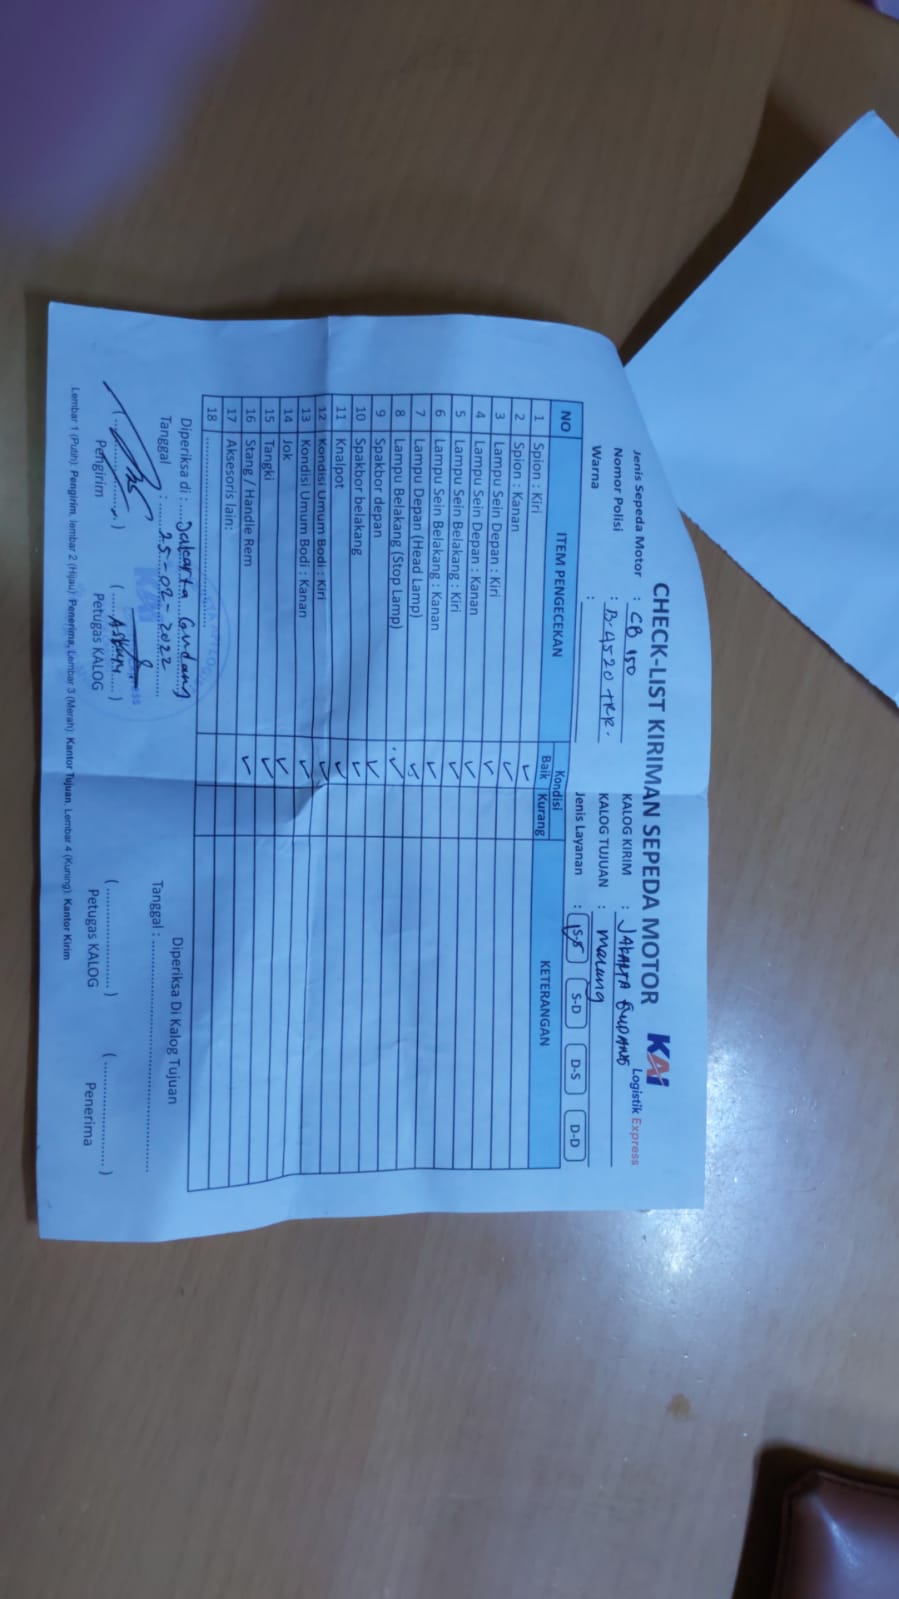 CHECK-LIST KIRIMAN SEPEDA MOTOR
KAI
Logistik Express
Jenis Sepeda Motor : CB 150
Nomor Polisi : B-4520 TRR.
Warna :
KALOG KIRIM : JAKARTA GUDANG
KALOG TUJUAN : Malang
Jenis Layanan : S-S S-D D-S D-D
NO ITEM PENGECEKAN Kondisi KETERANGAN
Baik Kurang
1 Spion : Kiri ✓
2 Spion : Kanan ✓
3 Lampu Sein Depan : Kiri ✓
4 Lampu Sein Depan : Kanan ✓
5 Lampu Sein Belakang : Kiri ✓
6 Lampu Sein Belakang : Kanan ✓
7 Lampu Depan (Head Lamp) ✓
8 Lampu Belakang (Stop Lamp) ✓
9 Spakbor depan ✓
10 Spakbor belakang ✓
11 Knalpot ✓
12 Kondisi Umum Bodi : Kiri ✓
13 Kondisi Umum Bodi : Kanan ✓
14 Jok ✓
15 Tangki ✓
16 Stang / Handle Rem ✓
17 Aksesoris lain:
18
Diperiksa di : Jakarta Gudang
Tanggal : 25-02-2022
Pengirim
Petugas KALOG
Diperiksa Di Kalog Tujuan
Tanggal :
Petugas KALOG
Penerima
Lembar 1 (Putih): Pengirim, lembar 2 (Hijau): Penerima, Lembar 3 (Merah): Kantor Tujuan, Lembar 4 (Kuning): Kantor Kirim